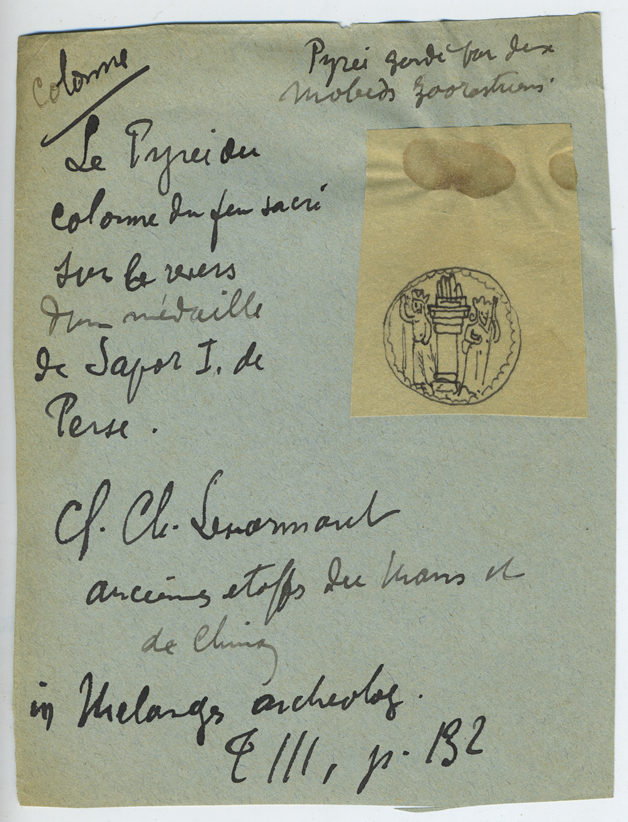 colonne
Pyrei gardé par deux
mobeds zoorastriens
Le Pyrei ou
colonne du feu sacré
sur le revers
d'un médaille
de Sapor I. de
Perse.
Cf. Ch. Lenormant
anciennes etoffs du Mans et
de Chinon
in Melanges archeolog.
T III, p. 132